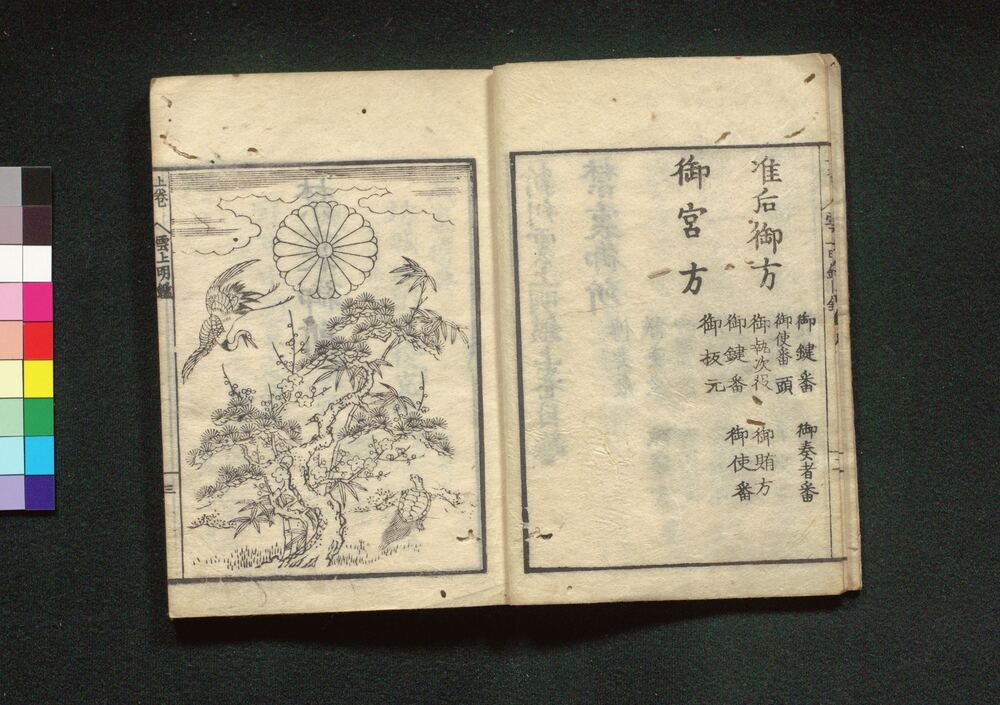 御鍵番 御奏者番
御使番頭
准后御方 御執次役 御賄方
御鍵番 御使番
御宮方 御板元
上巻
雲上明鑑
三